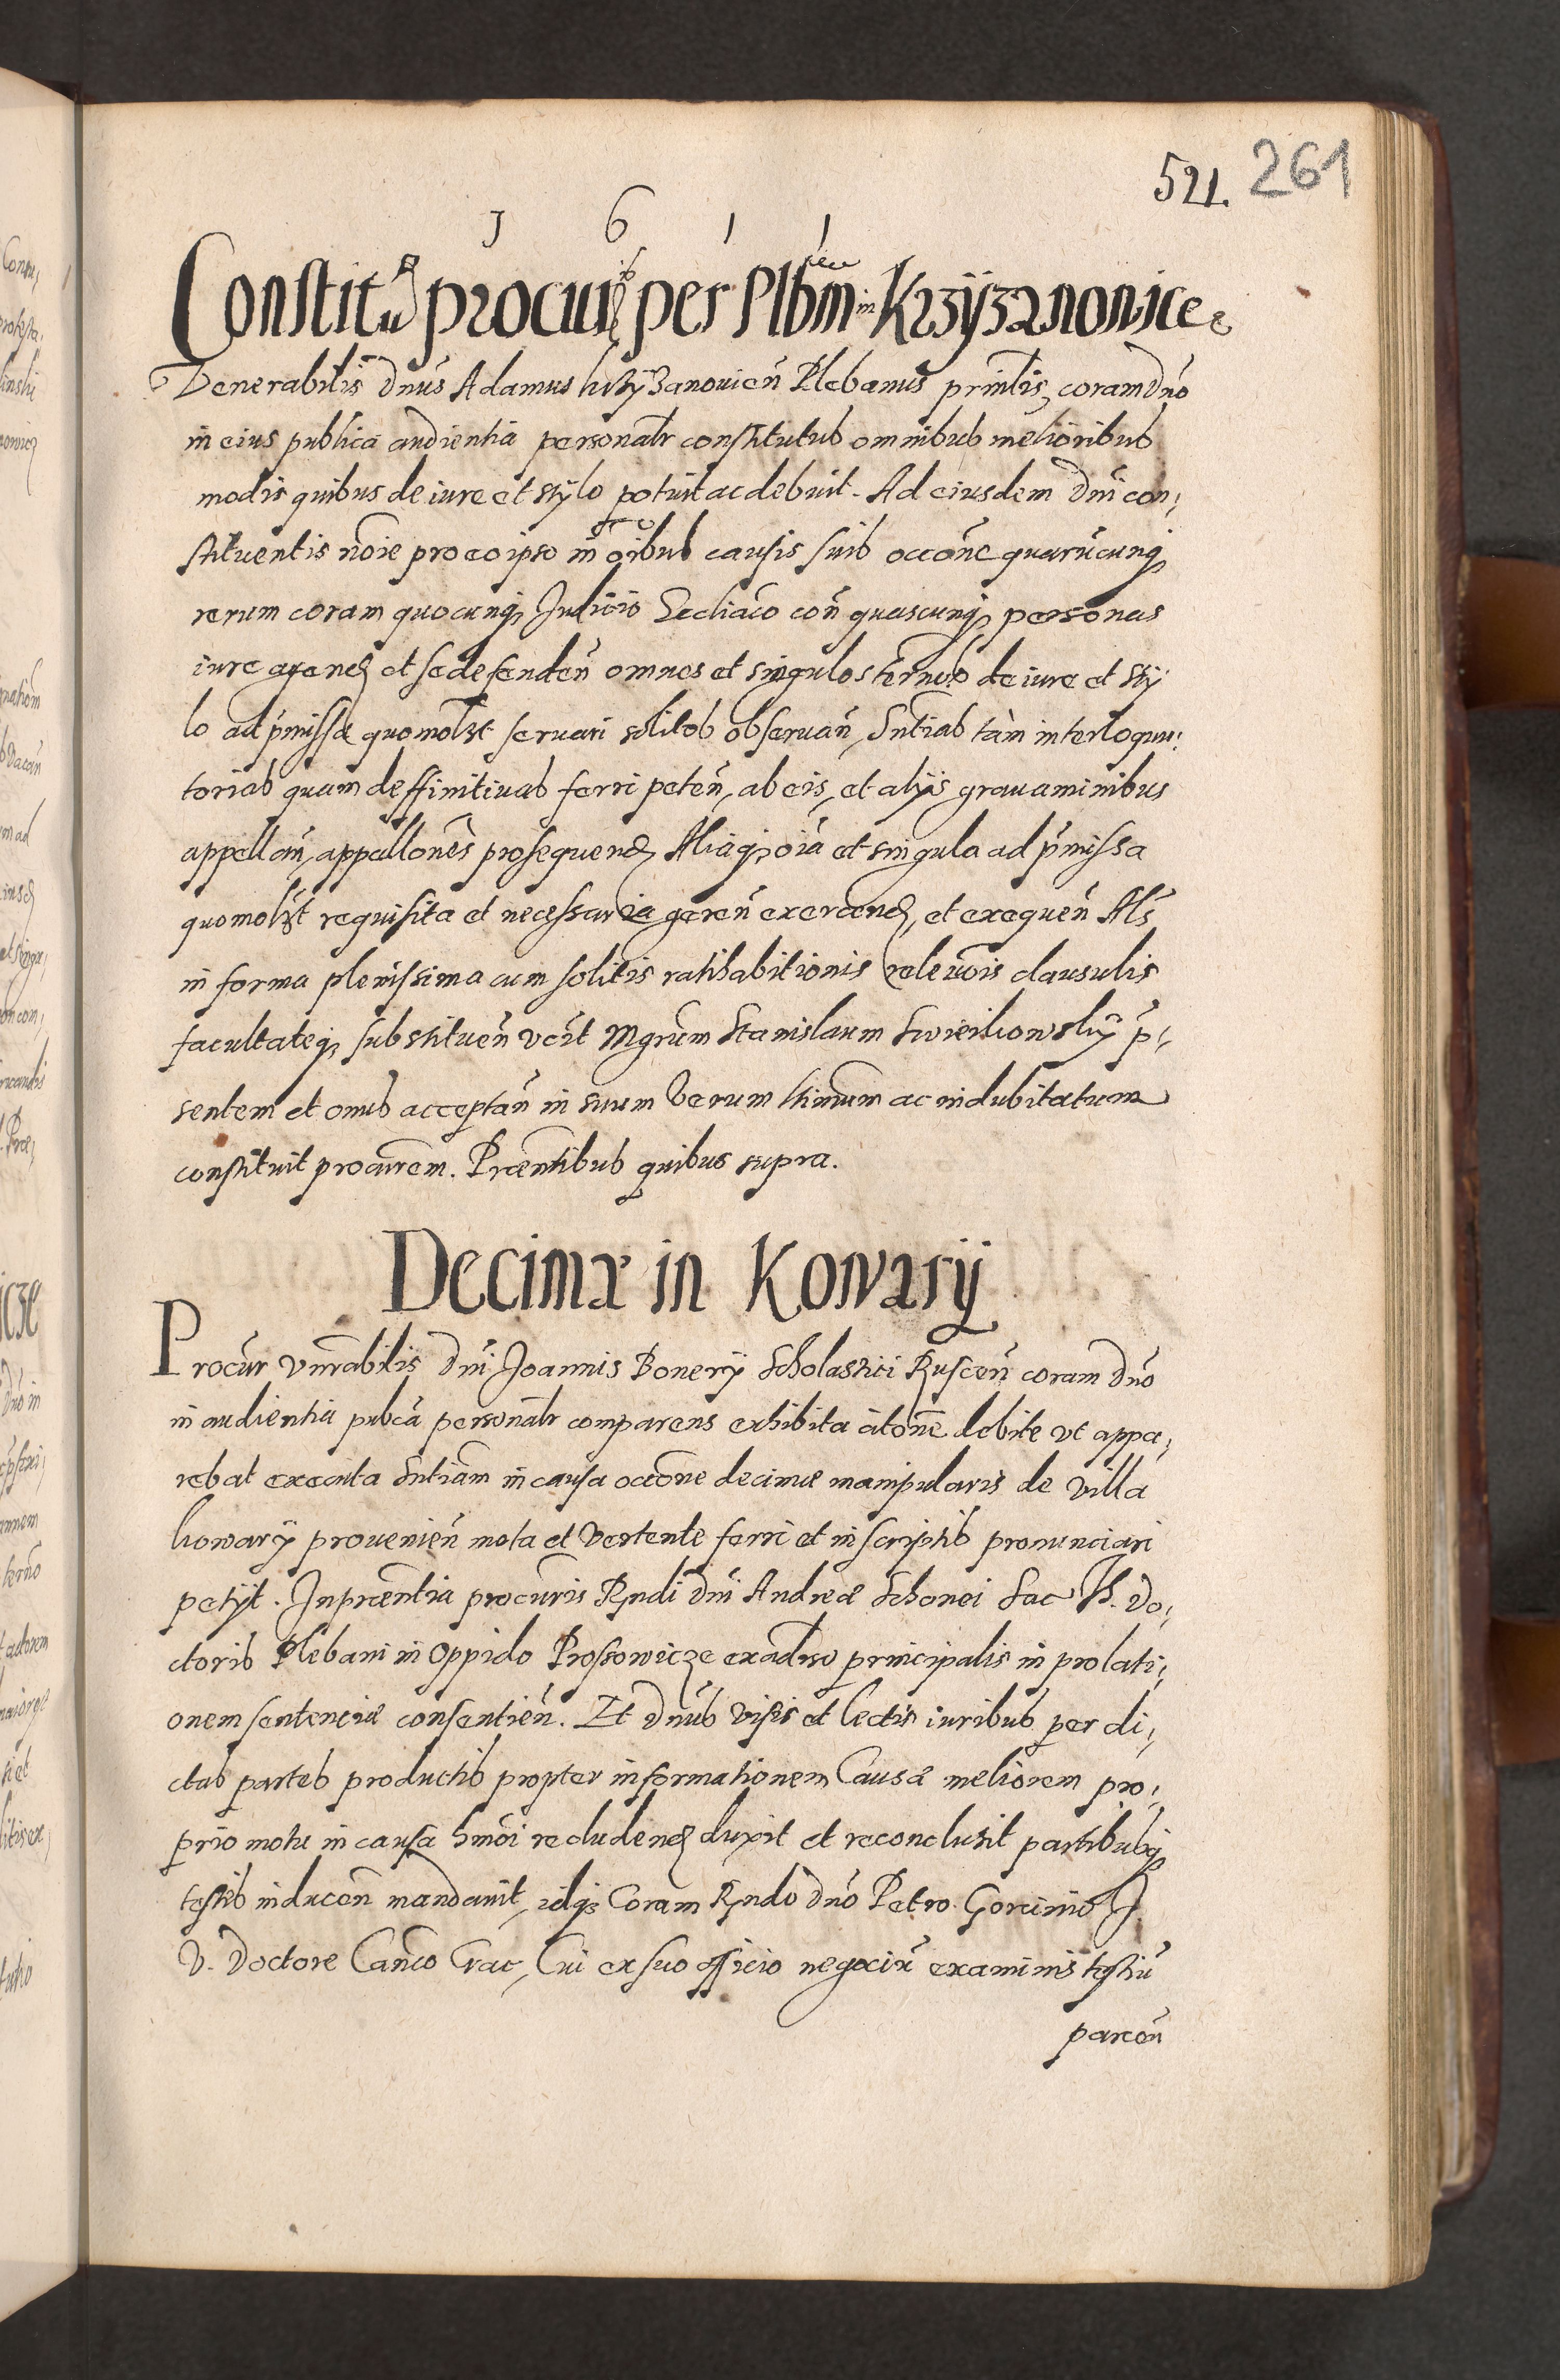 521. 261
1 6 1 1
Constitu procur per Plbm in Krzyżanovicee
Venerabilis Dnus Adamus krzyżanouicen̄ Plebanus prin̄tis, coram Dn̄o
in eius publica audientia personalr constitutus omnibus melioribus
modis quibus de iure et stylo potuit ac debuit. Ad eiusdem Dn̄i con,
stituentis nōie pro eo ipso in oībus causis suis occōne quarūcunq
rerum coram quocunq Juditio Ecclīaco con̄ quascunq personas
iure agend et se defenden̄ omnes et singulos ternos de iure et sty
lo ad p̄missa quomolżt seruari solitos obseruan̄, Sn̄tias tàm interloquu,
torias quam deffinitiuas ferri peten̄, ab eis, et alijs grauaminibus
appellan̄, appellōnes prosequend, Aliaq, oīa et singula ad p̄missa
quomolżt requisita et necessaria geren̄ exercend, et exequen̄ Als̄
in forma plenissima cum solitis ratihabitionis releuōis clausulis
facultateq, substituen̄ vc̄it Mgrūm Stanislaum Swieikowsky p̄,
sentem et onus acceptan̄ in suum Verum ltimum ac indubitatum
constituit procurem. Præntibus quibus supra.
Decimæ in Kowary
Procur̄ vn̄rabilis Dn̄i Joannis Bonery Scholastici Ruscen̄ coram Dn̄o
in audientia pubca personalr comparens exhibita c̄itone debite vt appa,
rebat executa Sn̄tiam in causa occōne decimæ manipularis de villa
kowary prouenien̄ mota et Vertente ferri et in scriptis pronunciari
petyt. In præntia procuris Rndi Dn̄i Andreæ Schonei Sac Th. Do,
ctoris Plebani in Oppido Prossowicze ex aduso principalis in prolati,
onem sententiæ consentien̄. Et Dn̄us visis et lectis iuribus per di,
ctas partes productis propter informationem Causæ meliorem pro,
prio motu in causa hm̄oi recludend duxit et reconclusit partibusq
testes inducen̄ mandauit, idq, Coram Rndo Dn̄o Petro Gorcinio J.
V. Doctore Can̄co Crac, Cui ex suo officio negociū examinis testiū
parcōn